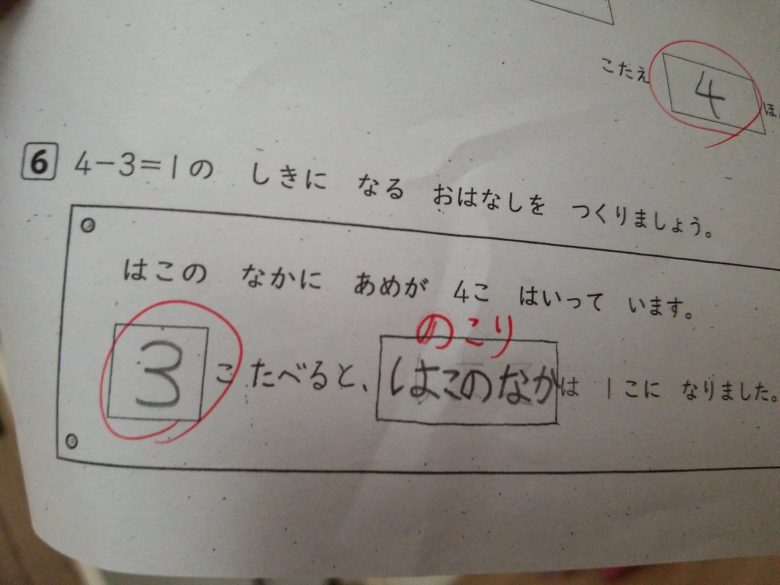 こたえ 4 ほん
6 4-3=1の しきに なる おはなしを つくりましょう。
はこの なかに あめが 4こ はいって います。
のこり
3 こ たべると、 はこのなか は 1こに なりました。